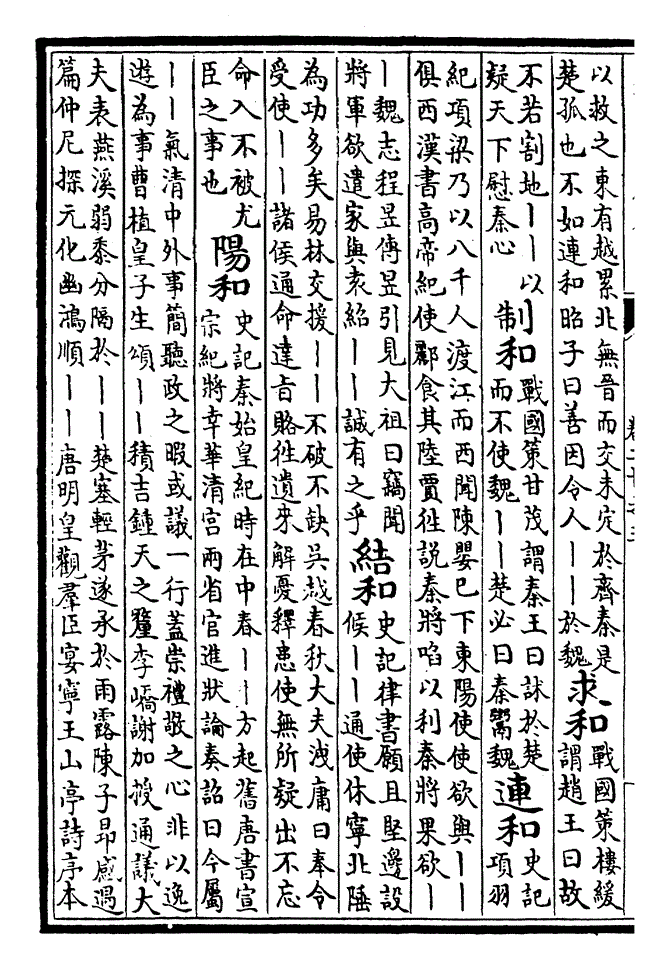 以救之東有越累北無晉而交未定於齊秦是
楚孤也不如連和昭子曰善因令人丨丨於魏
求和
戰國策樓緩
謂趙王曰故
不若割地丨丨以
疑天下慰秦心
制和
戰國策甘茂謂秦王曰訹於楚
而不使魏丨丨楚必曰秦鬻魏
連和
史記
項羽
紀項梁乃以八千人渡江而西聞陳嬰已下東陽使使欲與丨丨
俱西漢書高帝紀使酈食其陸賈徃說秦將啗以利秦將果欲丨
丨魏志程昱傳昱引見太祖曰竊聞
將軍欲遣家與袁紹丨丨誠有之乎
結和
史記律書願且堅邊設
候丨丨通使休寧北陲
為功多矣易林交援丨丨不破不缺吳越春秋大夫洩庸曰奉令
受使丨丨諸侯通命達旨賂徃遺來解憂釋患使無所疑出不忘
命入不被尤
臣之事也
陽和
史記秦始皇紀時在中春丨丨方起舊唐書宣
宗紀將幸華清宮兩省官進狀論奏詔曰今屬
丨丨氣清中外事簡聽政之暇或議一行蓋崇禮敬之心非以逸
遊為事曹植皇子生頌丨丨積吉鍾天之釐李嶠謝加授通議大
夫表燕溪弱黍分隔於丨丨楚塞輕茅遂承於雨露陳子昻感遇
篇仲尼探元化幽鴻順丨丨唐明皇觀羣臣宴寧王山亭詩序本